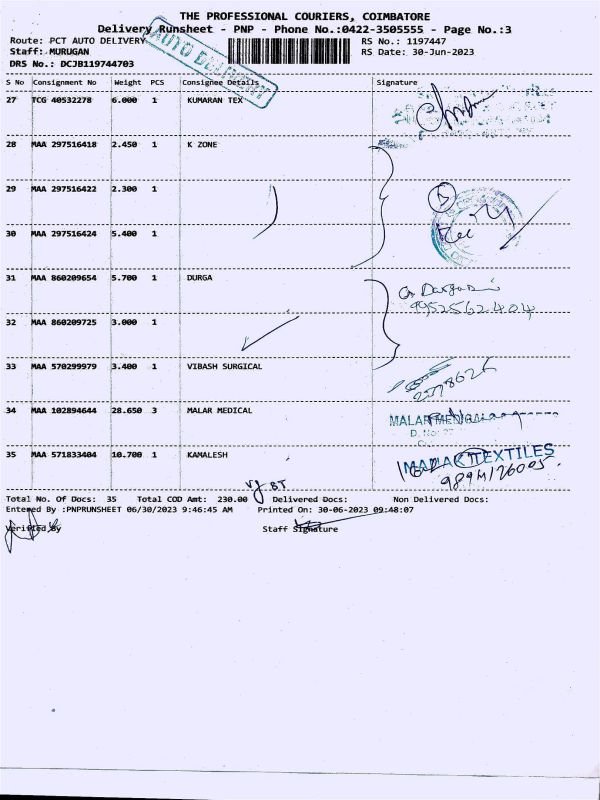 THE PROFESSIONAL COURIERS, COIMBATORE
Delivery Runsheet - PNP - Phone No.:0422-3505555 - Page No.:3
Route: PCT AUTO DELIVERY RS No.: 1197447
Staff: MURUGAN RS Date: 30-Jun-2023
DRS No.: DCJB119744703
AUTO DELIVERY
S No Consignment No Weight PCS Consignee Details Signature
27 TCG 40532278 6.000 1 KUMARAN TEX
28 MAA 297516418 2.450 1 K ZONE
29 MAA 297516422 2.300 1
30 MAA 297516424 5.400 1
31 MAA 860209654 5.700 1 DURGA
9952562404
32 MAA 860209725 3.000 1
33 MAA 570299979 3.400 1 VIBASH SURGICAL
34 MAA 102894644 28.650 3 MALAR MEDICAL
MALAR
35 MAA 571833404 10.700 1 KAMALESH
TEXTILES
Total No. Of Docs: 35 Total COD Amt: 230.00 Delivered Docs: Non Delivered Docs:
Entered By :PNPRUNSHEET 06/30/2023 9:46:45 AM Printed On: 30-06-2023 09:48:07
Verified By Staff Signature